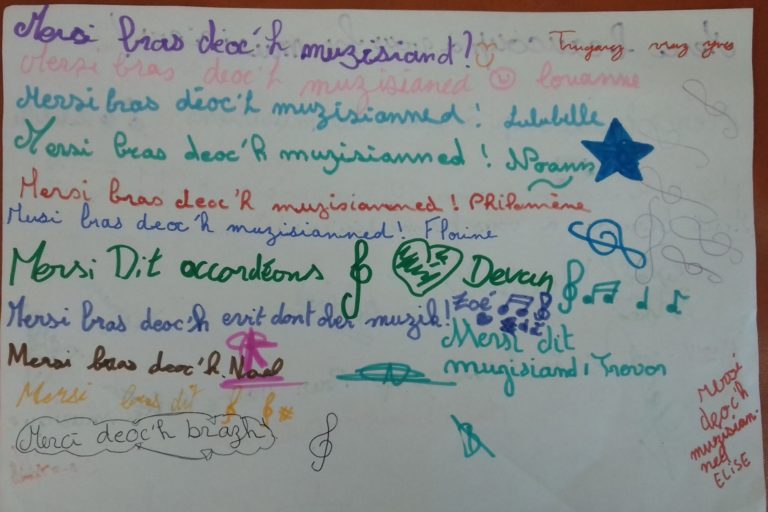 Mersi bras deoc'h muzisiand?
Trugarez vraz yves
Mersi bras deoc'h muzisianed louanne
Mersi bras deoc'h muzisianned ! Lulubelle
Mersi bras deoc'h muzisianned ! Noann
Mersi bras deoc'h muzisianned ! Philomène
Mersi bras deoc'h muzisianned! Florine
Mersi Dit accordéons Devan
Mersi bras deoc'h evit dont der muzik! Zoé
Mersi bras deoc'h. Naël
Mersi dit
muzisiand, Trevor
Mersi bras dit
Merci deoc'h brazh
Mersi
deoc'h
muzisian-
ned
ELiSE